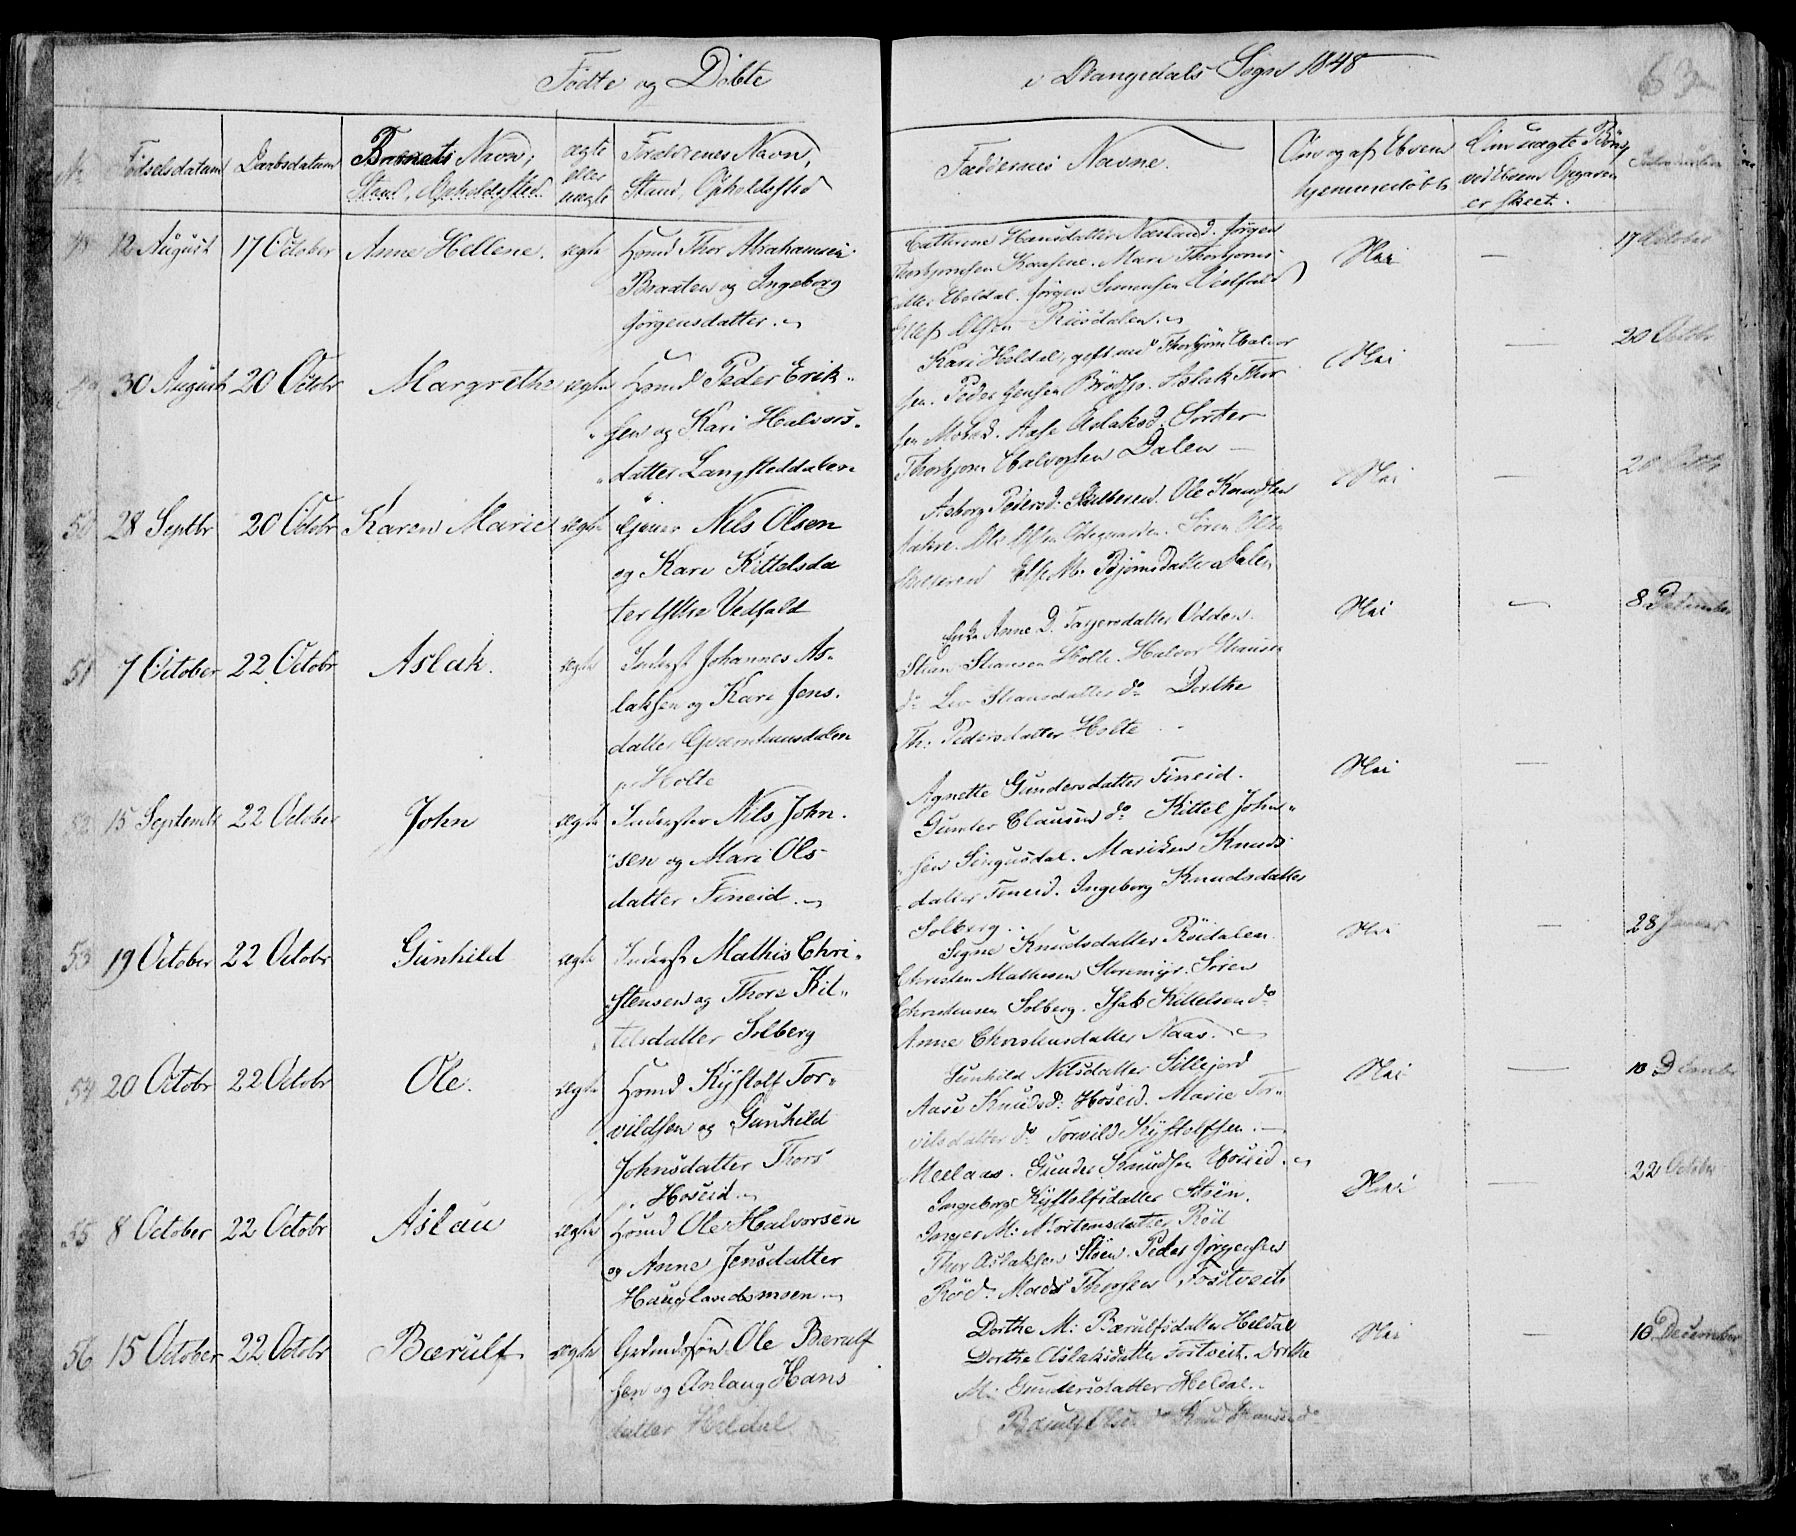 Fødte og Døbte
i Drangedals Sogn 1848
63
No Fødselsdatum Daabsdatum Barnets Navn, Stand, Opholdssted ægte eller uægte Forældrenes Navn, Stand, Opholdssted
Faddernes Navne. Om og af Hvem hjemmedøbt Om uægte Børn ved Hvem Opgaven er skeet.
12 August 17 October Anne Hellene. ægte Hmd Thor Abrahamsen
Braaten og Ingeborg
Jørgensdatter.
Cathrine Hansdatter Næsland. Jørgen
Thorbjørnsen Mari Thorbjørns
datter Heldal. Jørgen Simensen Vedfald
Ellef Olsen Riisdalen.
Nei — 17 October
30 August 20 Octobr Margrethe ægte Hmd Peder Erik-
sen og Kari Halvors-
datter Langsteddalen
Kari Heldal, gift med Thorbjørn Halvor
sen. Peder Jensen Brødsø. Aslak Thor
sen Aase Aslaksd. Sorter
Thorbjørn Halvorsen Dalen —
Nei — 20 Octobr
50 28 Septbr 20 Octobr Karen Marie ægte Gjever Nils Olsen
og Kari Kittelsda
ter Ystre Vedfald
Asborg Pedersd. Ole Knudsen
Ole Olsen Søren Olsen
Else M. Bjørnsdatter Dalen
Nei — 20 Octbr
51 7 October 22 Octobr Aslak. ægte Inderst Johannes As-
laksen og Kari Jens-
datter
p. Holte
Anne D. Tarjersdatter Odden.
Stian Stiansen Holte. Halvor Stiansen
do Liv Stiansdatter do Dorthe
Th: Pedersdatter Holte
Nei — 8 December
52 15 Septembr 22 October John ægte Inderster Nils John-
sen og Mari Ols-
datter Fineid.
Agnette Gundersdatter Fineid.
Gunder Clausen do Kittel John-
sen Singusdal. Mariken Knuds-
datter Fineid. Ingeborg Knudsdatter
Solberg.
Nei —
53 19 October 22 Octobr Gunhild ægte Inderst Mathis Chri-
stensen og Thore Kit-
telsdatter Solberg
Signe Knudsdatter Röidalen.
Christen Mathisen Storemyr. Søren
Christensen Solberg. Isak Kittelsen do
Anne Christensdatter Naas.
Nei — 28 Januar
54 20 Octobr 22 Octobr Ole. ægte Hmd Kystolf Tor-
vildsen og Gunhild
Johnsdatter Thors
p. Hoseid.
Gunhild Nilsdatter Sillejord
Aase Knudsd: Hoseid. Marie Tor-
vilsdatter do Torvild Kystolfsen. —
Meelaas. Gunder Knudsen Hoseid.
Nei — 10 Decembr
55 8 October 22 Octobr Aslau ægte Hmd Ole Halvorsen
og Anne Jensdatter
Hauglandsmoen.
Ingeborg Kystolfsdatter Støen.
Inger M: Mortensdatter Röd
Thor Aslaksen Støen. Peder Jørgensen
Röd. Mads Thorsen Fostveit
Nei — 22 October
56 15 October 22 Octobr Bærulf ægte Ole Bærulf
sen og Anlaug Hans
datter Heldal
Dorthe M: Bærulfsdatter Heldal
Dorthe Aslaksdatter Fostveit. Dorthe
M. Gundersdatter Heldal.
Bærulf Olsen do Knud Hansen do
Nei — 10 December